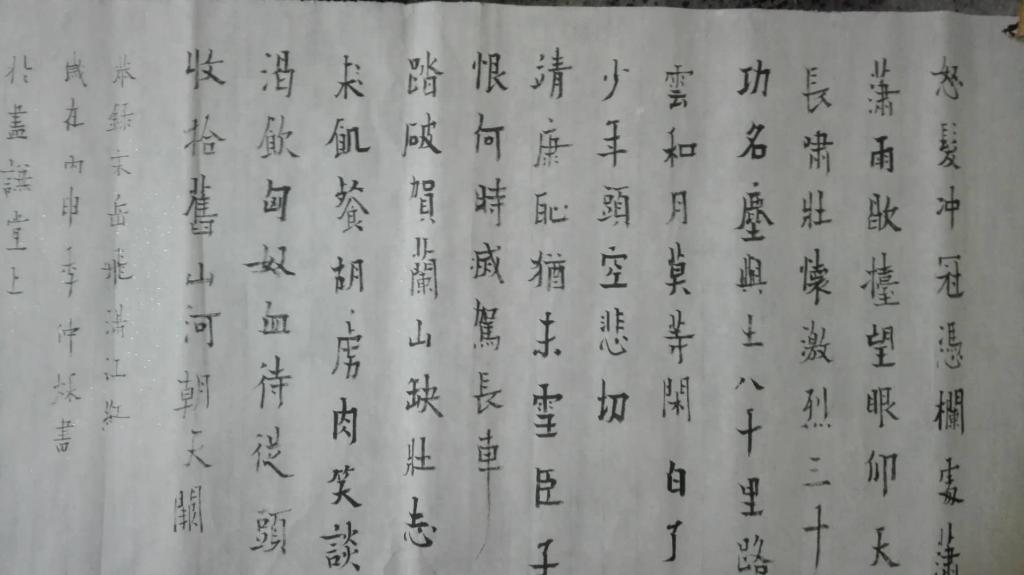 怒髮冲冠憑欄處瀟
瀟雨歇擡望眼仰天
長嘯壯懷激烈三十
功名塵與土八千里路
雲和月莫等閑白了
少年頭空悲切
靖康恥猶未雪臣子
恨何時滅駕長車
踏破賀蘭山缺壯志
飢餐胡虜肉笑談
渴飲匈奴血待從頭
收拾舊山河朝天闕
恭錄宋岳飛滿江紅
歲在丙申季冲書
於盡謙堂上